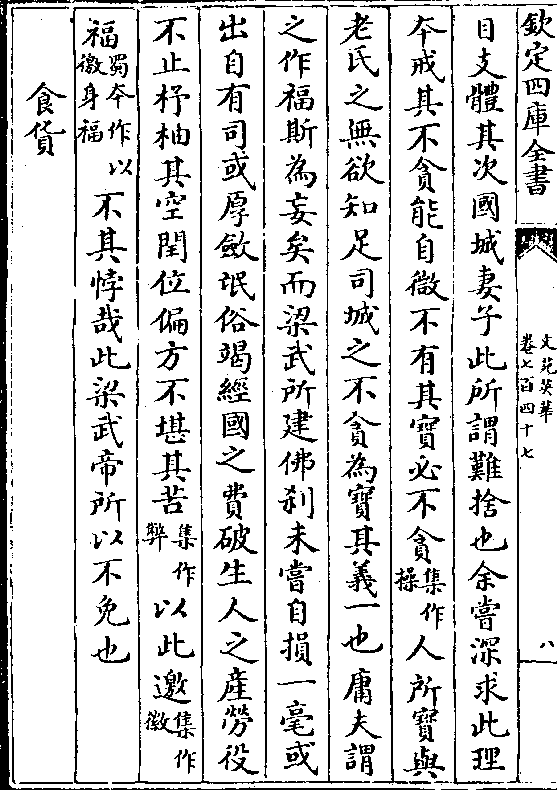 欽定四庫全書
文苑英華
卷七百四十七
八
目支體其次國城妻子此所謂難捨也余嘗深求此理
本戒其不貪能自微不有其寳必不貪集作操人所寳與
老氏之無欲知足司城之不貪為寳其義一也庸夫謂
之作福斯為妄矣而梁武所建佛刹未嘗自損一毫或
出自有司或厚斂氓俗竭經國之費破生人之產勞役
不止杼柚其空閏位偏方不堪其苦集作弊以此邀集作徼
福蜀本作以徼身福不其悖哉此梁武帝所以不免也
食貨